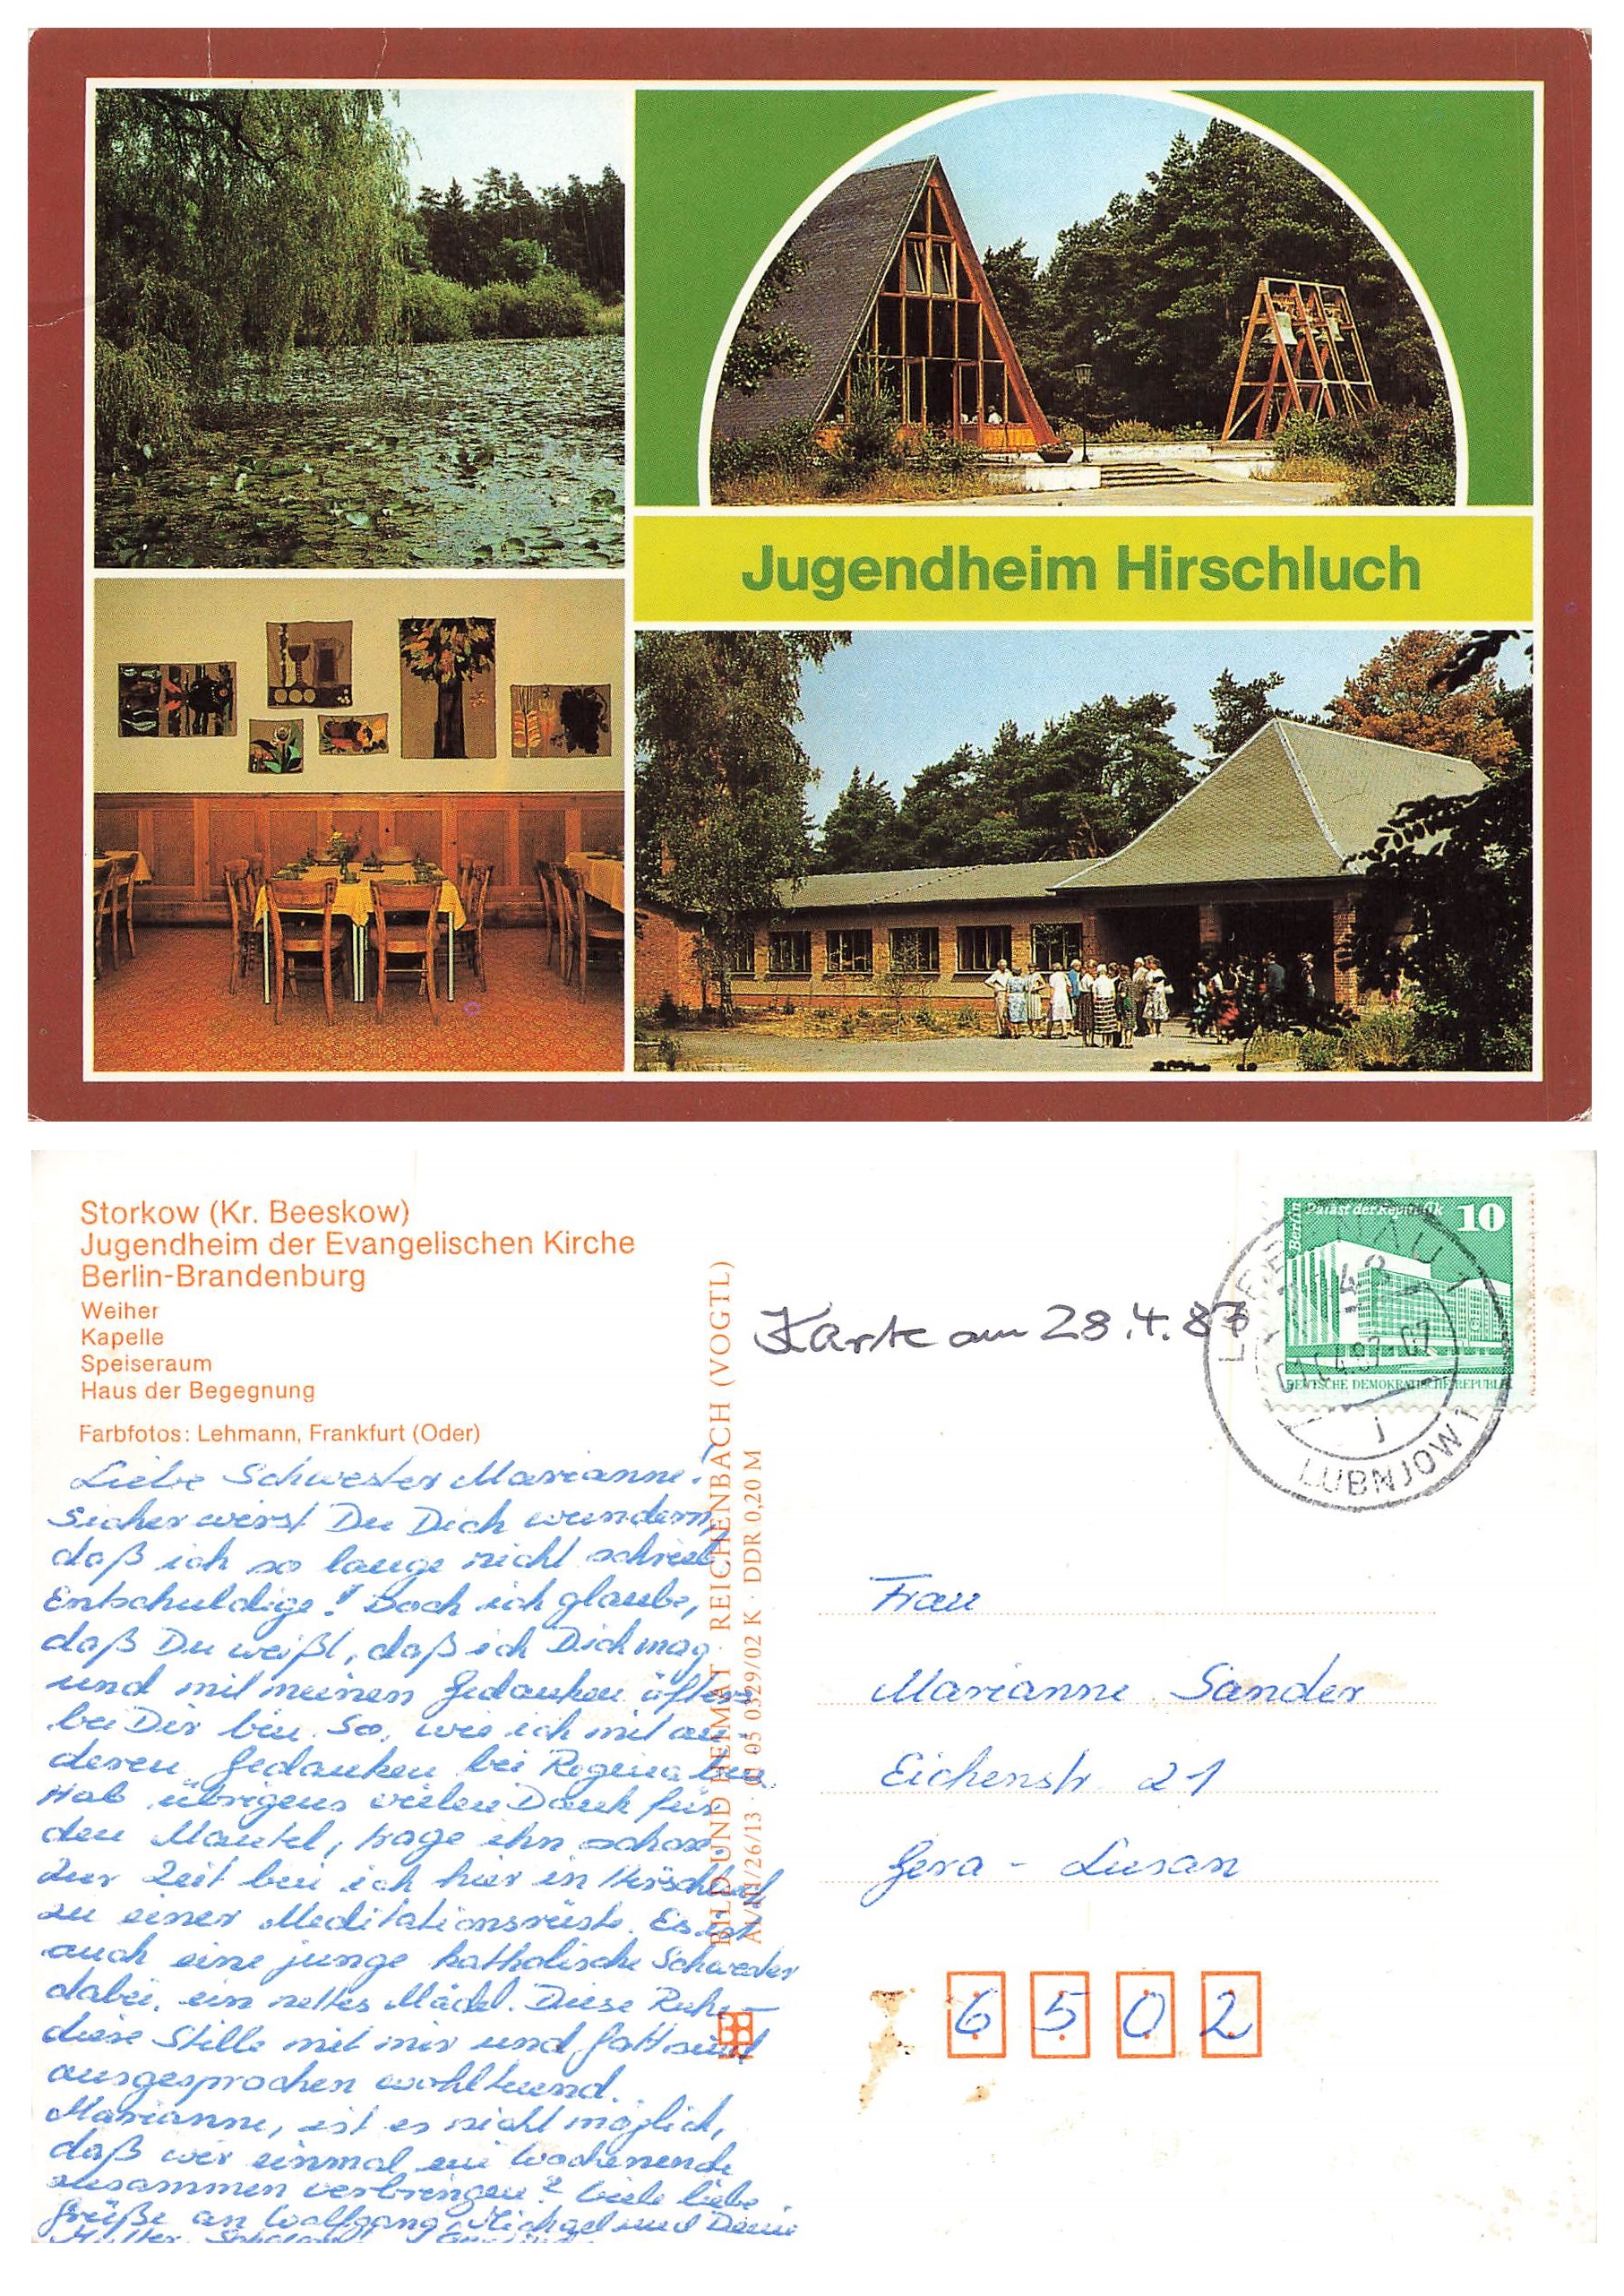 Jugendheim Hirschluch
Storkow (Kr. Beeskow)
Jugendheim der Evangelischen Kirche
Berlin-Brandenburg
Weiher
Kapelle
Speiseraum
Haus der Begegnung
Farbfotos: Lehmann, Frankfurt (Oder)
Liebe Schwester Marianne!
Sicher wirst Du Dich wundern,
daß ich so lange nicht schrieb
Entschuldige! Doch ich glaube,
daß Du weißt, daß ich Dich mag
und mit meinen Gedanken öfters
bei Dir bin. So, wie ich mit an-
deren Gedanken bei Regina bin.
Hab übrigens vielen Dank für
den Mantel, trage ihn schon.
Zur Zeit bin ich hier in Hirschluch
zu einer Meditationsrüste. Es ist
auch eine junge katholische Schwester
dabei, ein nettes Mädel. Diese Ruhe –
diese Stille mit mir und Gott sind
ausgesprochen wohltuend.
Marianne, ist es nicht möglich,
daß wir einmal ein Wochenende
zusammen verbringen? Viele liebe
Grüße an Wolfgang, Michael und Deine
Mutter.
BILD UND HEIMAT · REICHENBACH (VOGTL)
A1/III/26/13 · 01 05 0329/02 K · DDR 0,20 M
Karte am 28.4.87
Berlin
Palast der Republik 10
DEUTSCHE DEMOKRATISCHE REPUBLIK
LUBNJOW 1
j
Frau
Marianne Sander
Eichenstr. 21
Gera - Lusan
6502